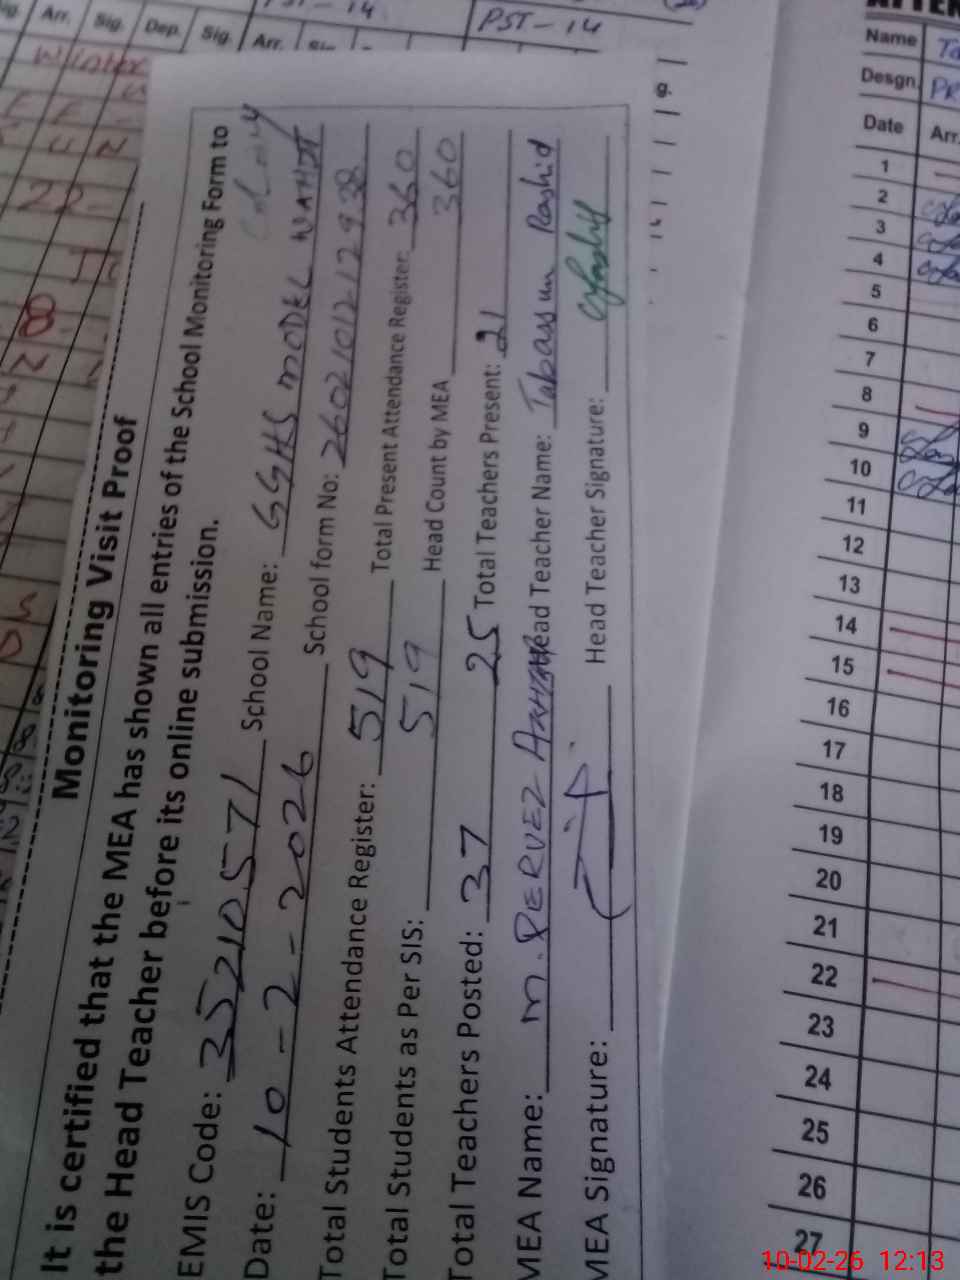 Monitoring Visit Proof
It is certified that the MEA has shown all entries of the School Monitoring Form to
the Head Teacher before its online submission.
EMIS Code: 35210571 School Name: GGHS MODEL WAHDT Colony
Date: 10-2-2026 School form No: 2602101212938
Total Students Attendance Register: 519 Total Present Attendance Register: 360
Total Students as Per SIS: 519 Head Count by MEA 360
Total Teachers Posted: 37 25 Total Teachers Present: 21
MEA Name: M. PERVEZ Head Teacher Name: Tabassum Rashid
MEA Signature: Head Teacher Signature:
Arr. Sig. Dep. Sig. Arr.
PST-14
Winter
Name
Desgn.
Date Arr.
1
2
3
4
5
6
7
8
9
10
11
12
13
14
15
16
17
18
19
20
21
22
23
24
25
26
27
10-02-26 12:13